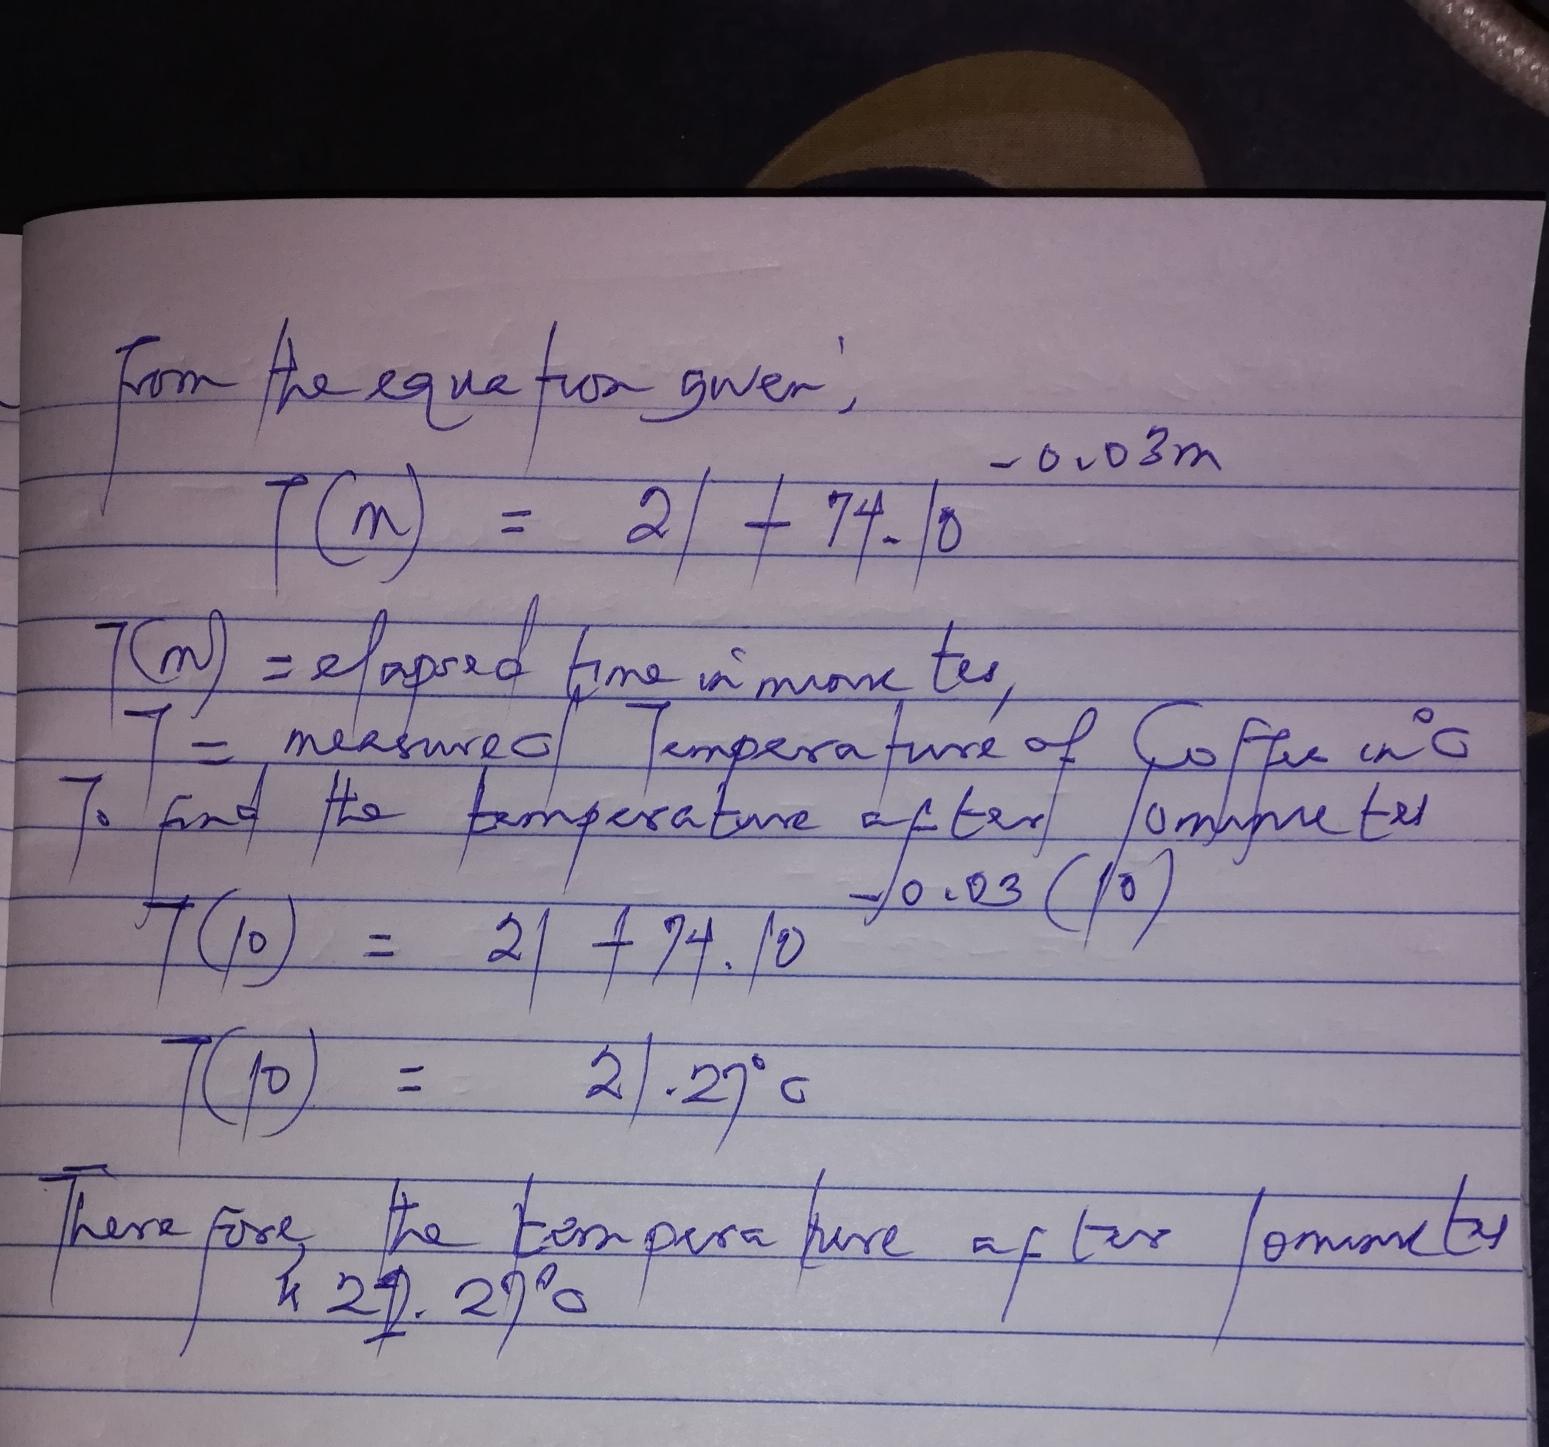 From the equation given;
T(m) = 21 + 74.10^-0.03m
T(m) = elapsed time in minutes,
T = measured Temperature of Coffee in °C
To find the temperature after 10minutes
T(10) = 21 + 74.10^-0.03(10)
T(10) = 21.27°C
Therefore, the temperature after 10minutes
is 21.27°C